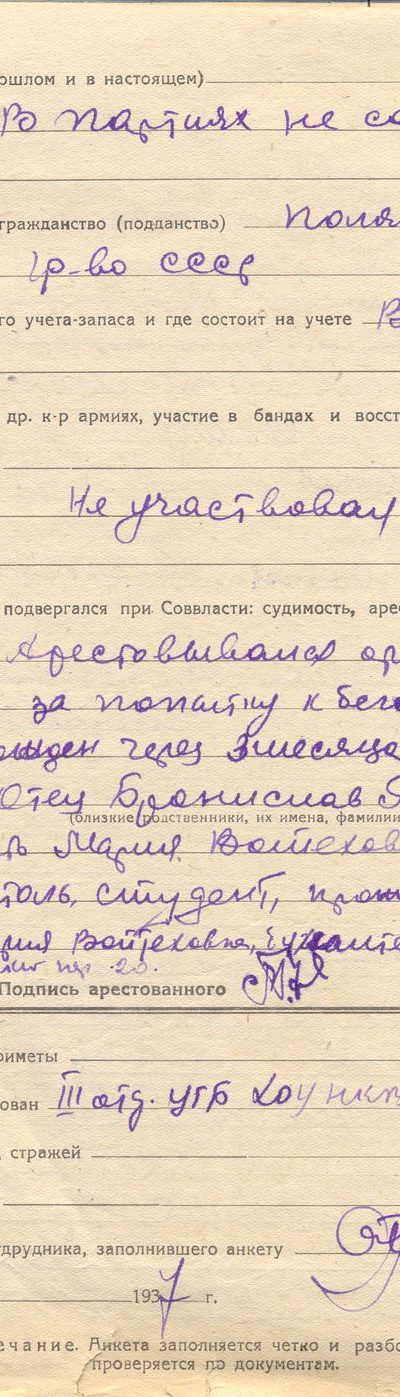 ошлом и в настоящем)
В партиях не со
гражданство (подданство) Поля
гр-во СССР
го учета-запаса и где состоит на учете
др. к-р армиях, участие в бандах и восст
Не участвовал
подвергался при Соввласти: судимость, аре
Арестовывался ор
за попытку к бег
ожден через 3 месяца
Отец Бронислав Я
(близкие родственники, их имена, фамилии
ть Мария Войтехов
толь, студент, прож
рия Войтеховна,
Подпись арестованного
риметы
ован III отд. УГБ ХОУ НКВ
, стражей
трудника, заполнившего анкету
1937 г.
ечание. Анкета заполняется четко и разбо
проверяется по документам.